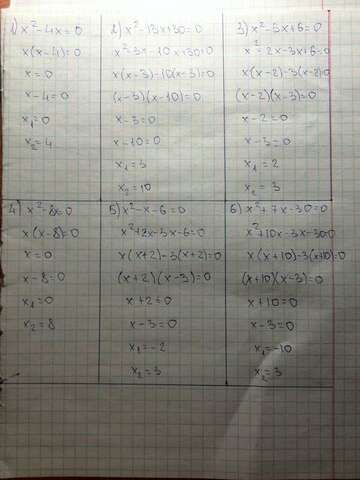 1) x²-4x=0
x(x-4)=0
x=0
x-4=0
x₁=0
x₂=4
2) x²-13x+30=0
x²-3x-10x+30=0
x(x-3)-10(x-3)=0
(x-3)(x-10)=0
x-3=0
x-10=0
x₁=3
x₂=10
3) x²-5x+6=0
x²-2x-3x+6=0
x(x-2)-3(x-2)=0
(x-2)(x-3)=0
x-2=0
x-3=0
x₁=2
x₂=3
4) x²-8x=0
x(x-8)=0
x=0
x-8=0
x₁=0
x₂=8
5) x²-x-6=0
x²+2x-3x-6=0
x(x+2)-3(x+2)=0
(x+2)(x-3)=0
x+2=0
x-3=0
x₁=-2
x₂=3
6) x²+7x-30=0
x²+10x-3x-30=0
x(x+10)-3(x+10)=0
(x+10)(x-3)=0
x+10=0
x-3=0
x₁=-10
x₂=3